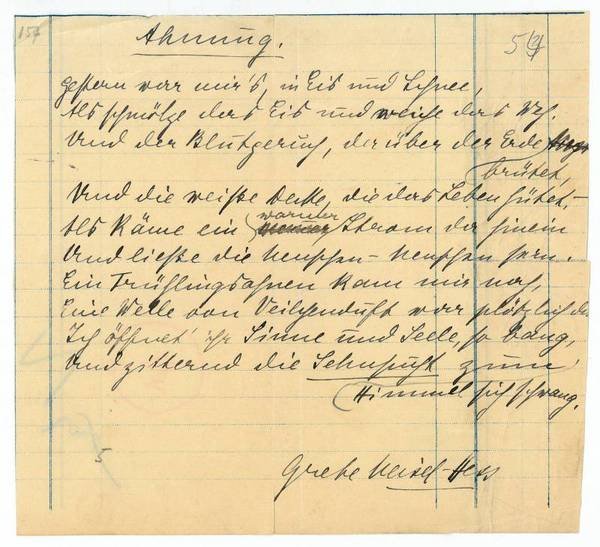 157
Ahnung.
5
Gestern war mir's, in Eis und Schnee,
Als schmölze das Eis und weiche das Weh.
Und der Blutgeruch, der über der Erde
brütet,
Und die weiße Decke, die das Leben hütet, –
Als käme ein warmer Strom da hinein
Und ließe die Menschen – Menschen sein.
Ein Frühlingsahnen kam mir nah,
Eine Welle von Veilchenduft war plötzlich da
Ich öffnet' ihr Sinne und Seele, so bang,
Und zitternd die Sehnsucht zum
Himmel sich schwang.
5
Grete Meisel-Hess